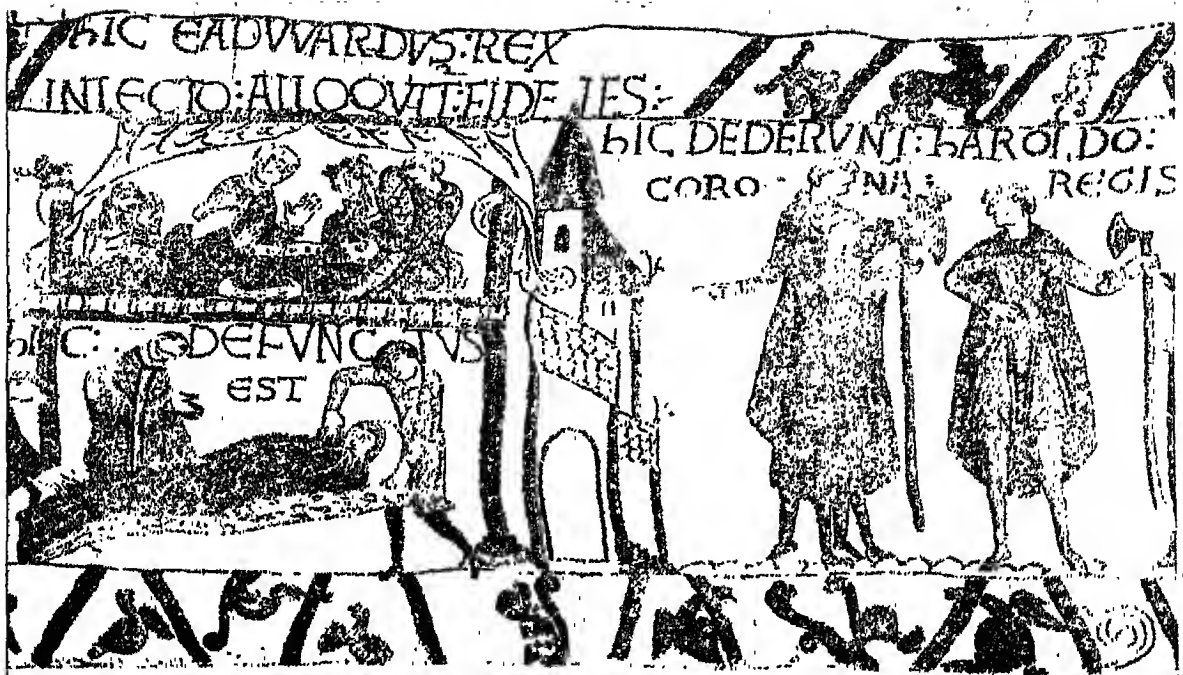 hIC EADVVARDVS:REX
INLECTO:ALLOQVIT:FIDELES:
hIC DEDERVNT:hAROLDO:
CORONA: REGIS
hIC: DEFVNCTUS
EST